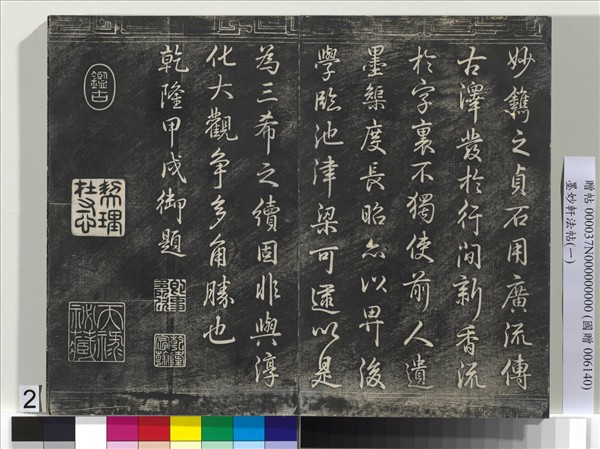 妙鐫之貞石用廣流傳
古澤發於行間新香流
於字裏不獨使前人遺
墨榘度長昭亦以畀後
學臨池津梁可遂以是
為三希之續固非與淳
化大觀爭多角勝也
乾隆甲戌御題
乾隆宸翰
鑑古
贈帖 000037N0000000000 (國贈 006140)
墨妙軒法帖(一)
2